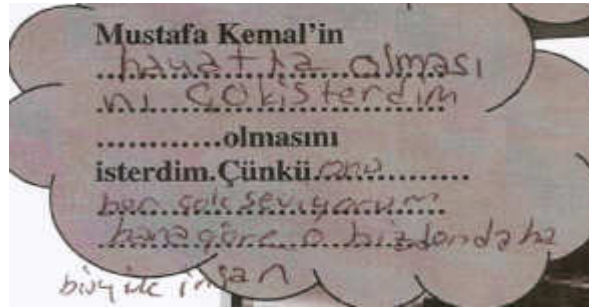 Mustafa Kemal'in
hayatta olması
nı çok isterdim
............olmasını
isterdim.Çünkü onu
ben çok seviyorum
bana göre o bizden daha
büyük insan